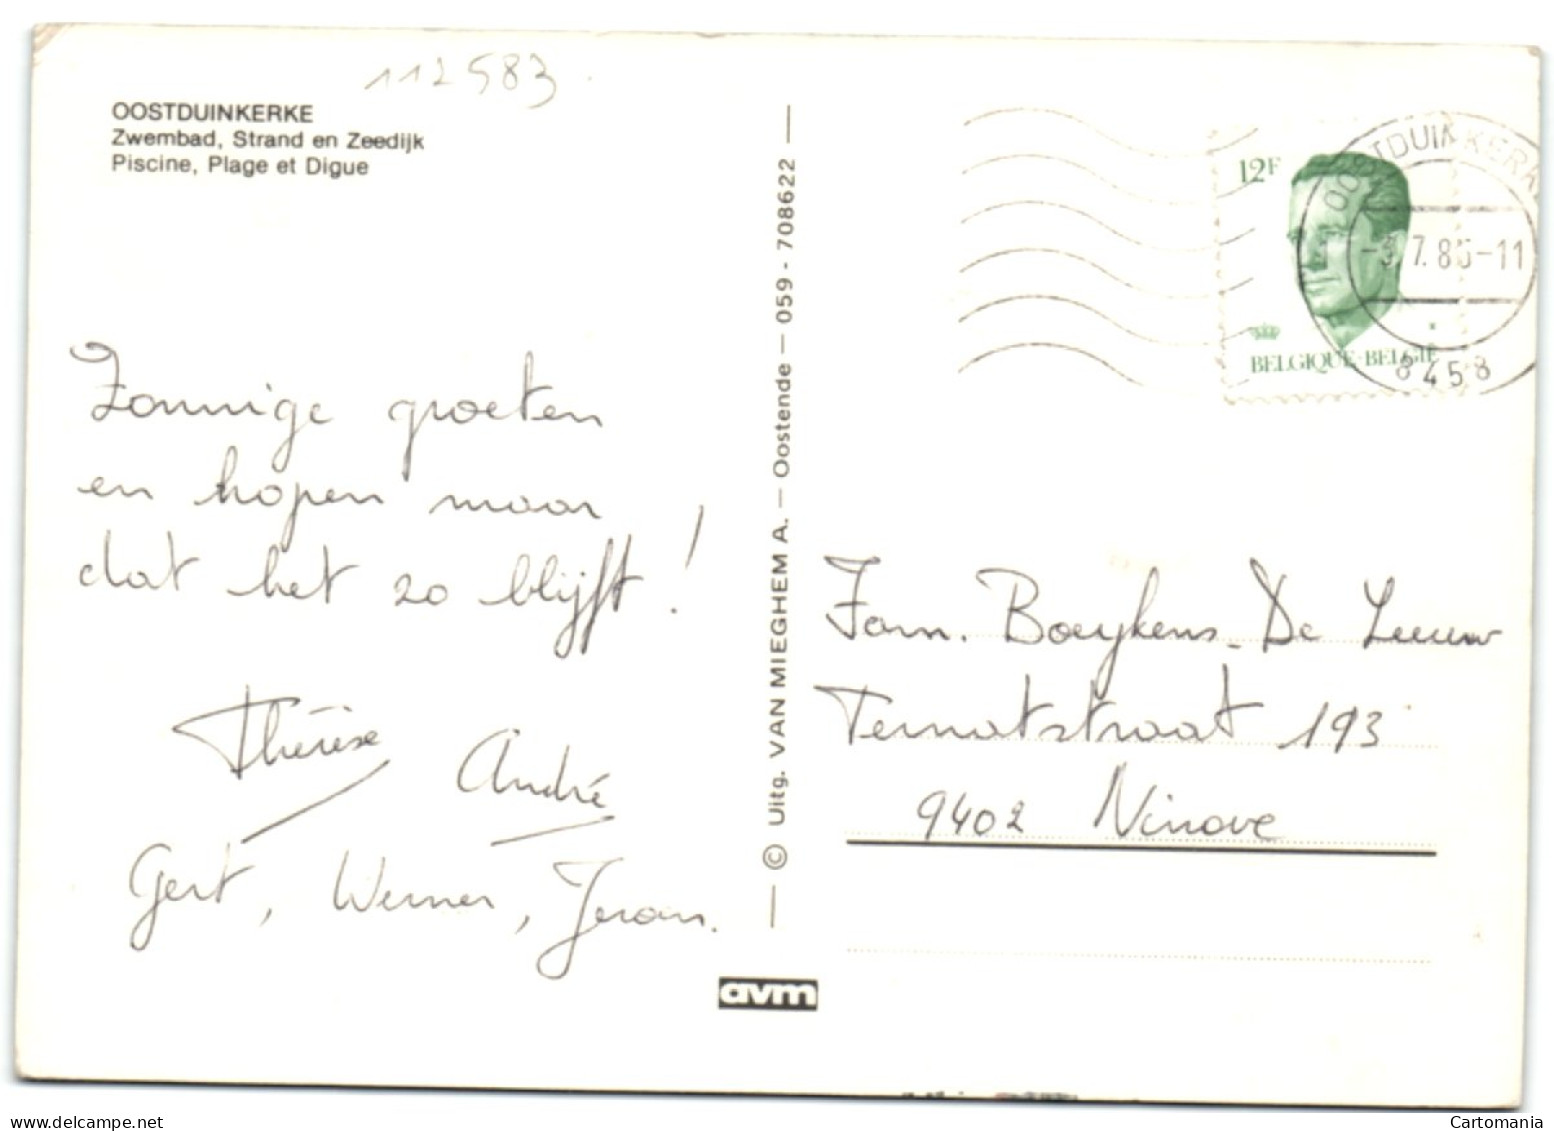 112583
OOSTDUINKERKE
Zwembad, Strand en Zeedijk
Piscine, Plage et Digue
Zonnige groeten
en hopen maar
dat het zo blijft!
Thérèse André
Gert, Werner, Jeroen.
© Uitg. VAN MIEGHEM A. — Oostende — 059 - 708622
avm
12F
BELGIQUE-BELGIË
OOSTDUINKERKE
-3.7.85-11
8458
Fam. Boeykens-De Leeuw
Ternatstraat 193
9402 Ninove
Cartomania